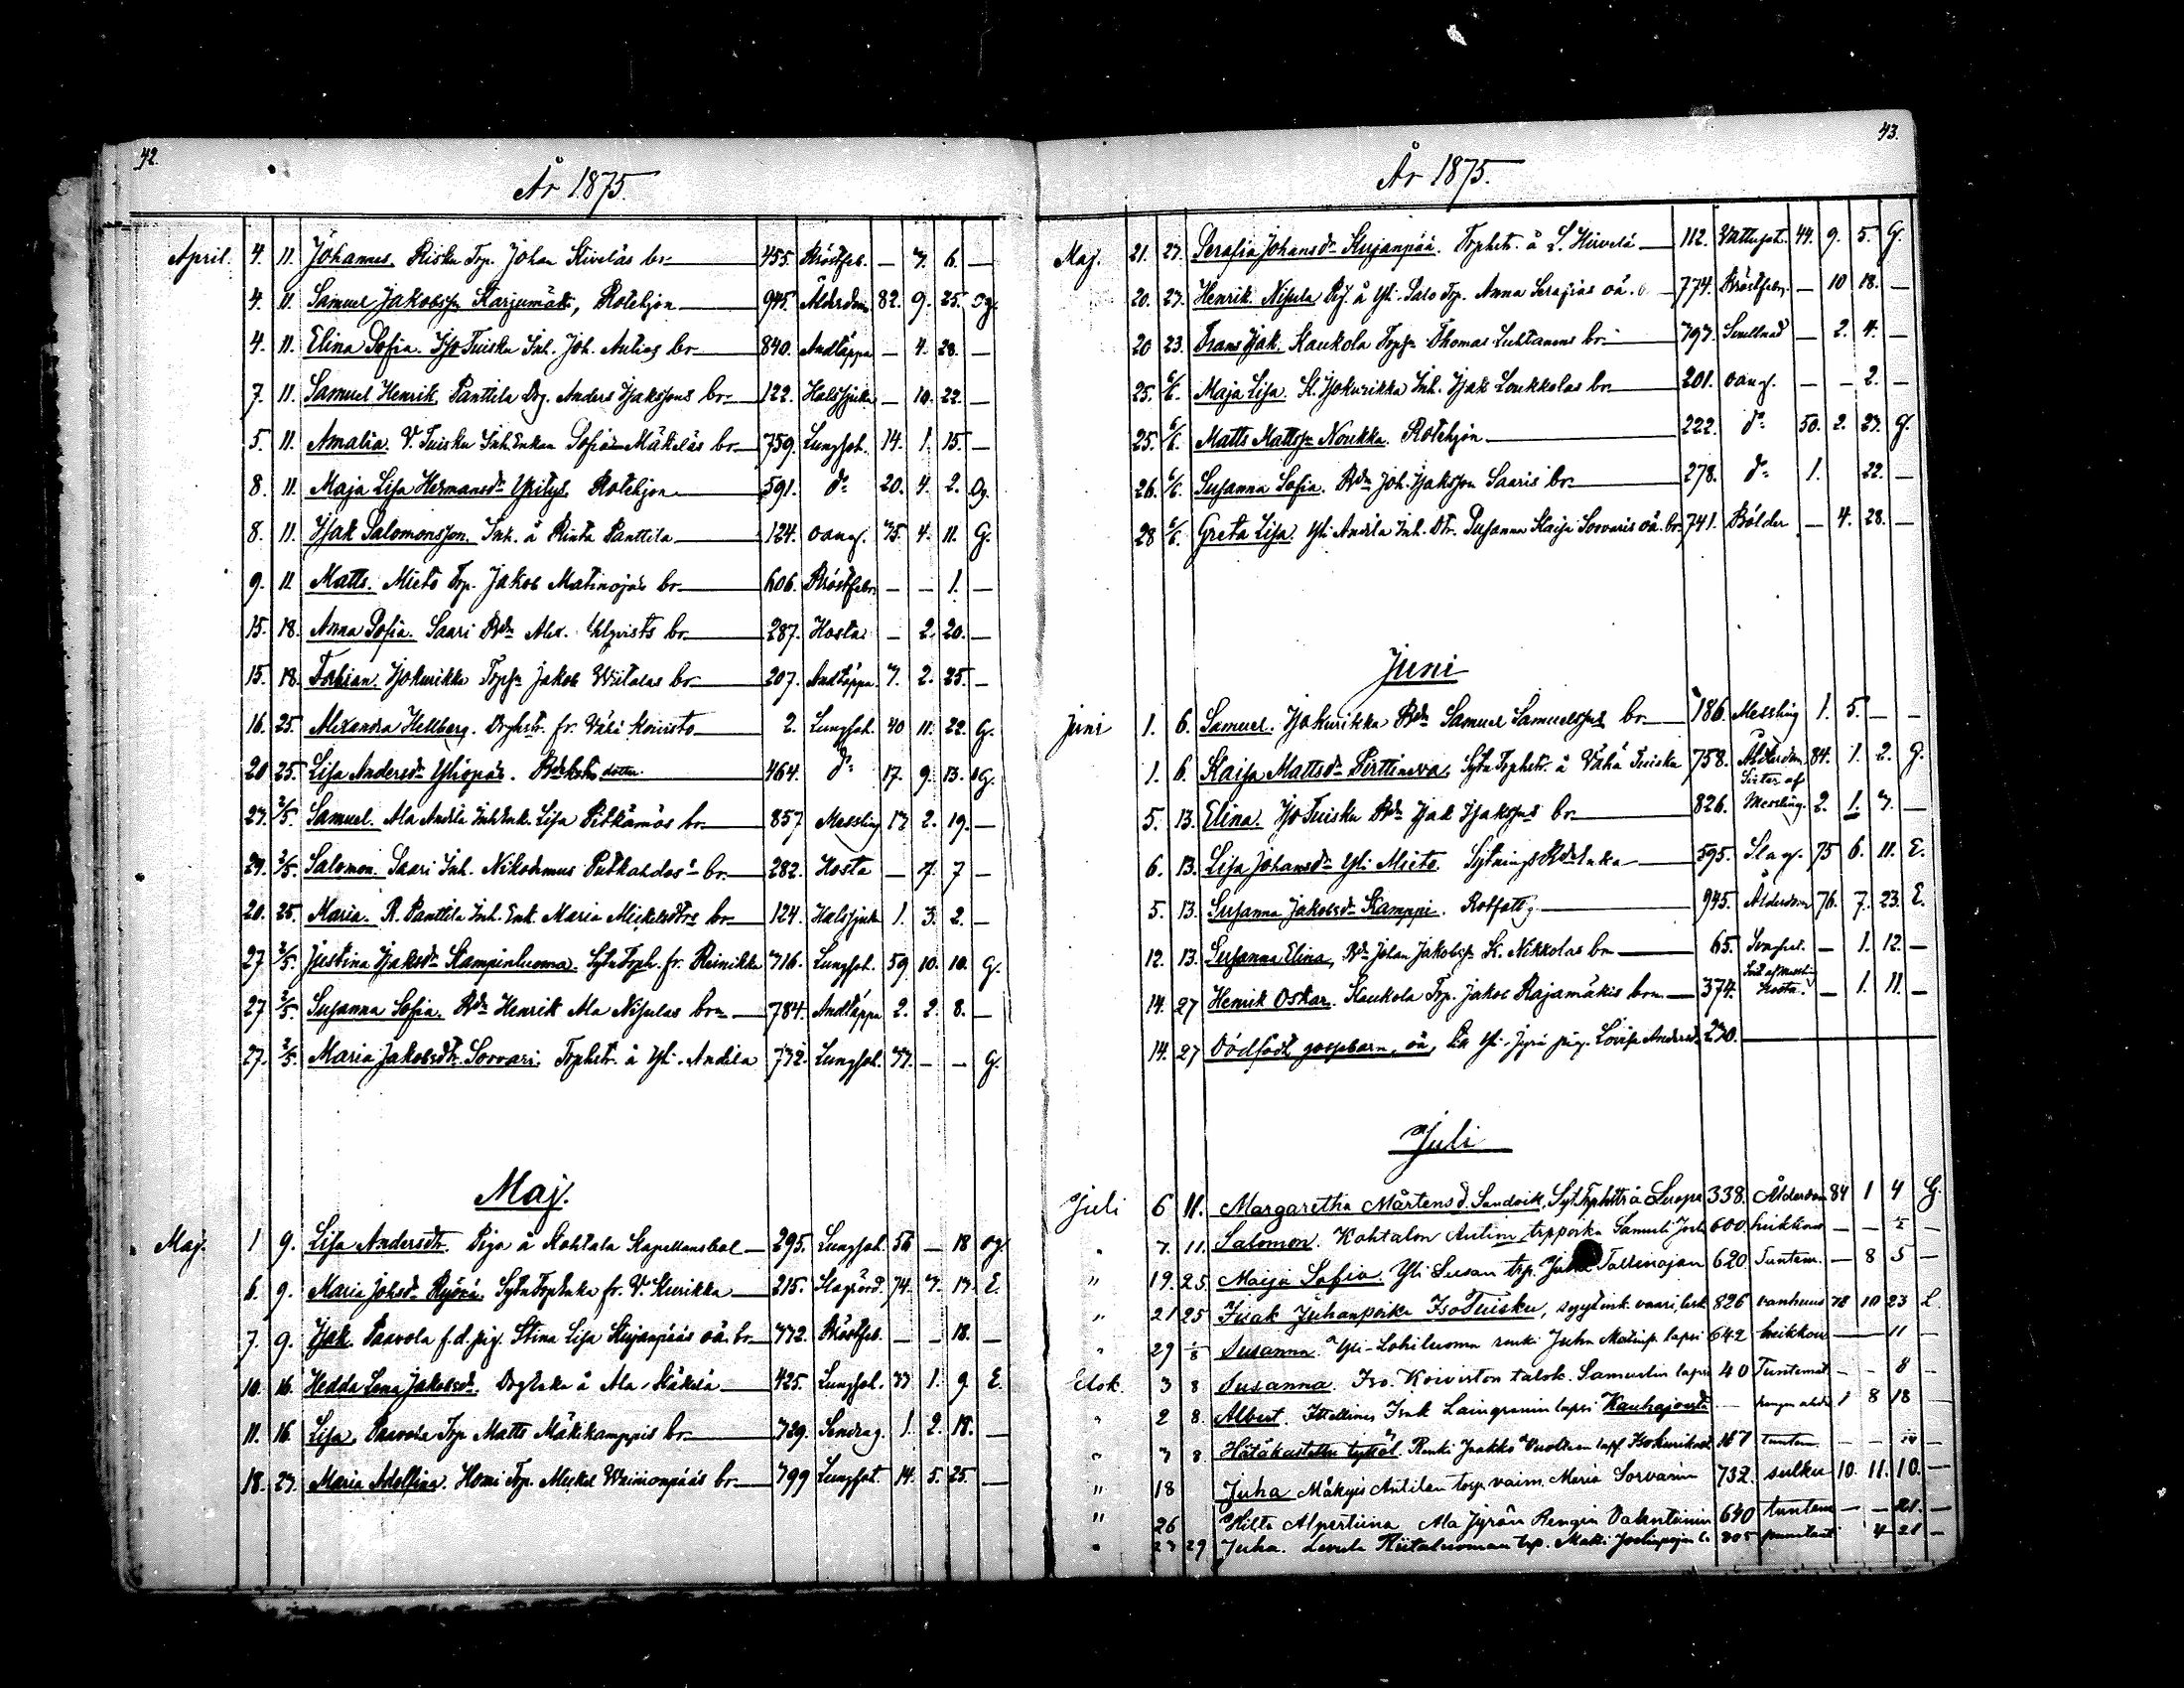 42.
År 1875.
April. 4. 11. Johannes. Risku Trp. Johan Kiveläs br. 455. Bröstfeb. — 7. 6. —
4. 11. Samuel Jakobsson Karjumäki, Rotehjon 945. Ålderdom 82. 9. 25. Og.
4. 11. Elina Sofia. Iso Tuisku Inh. Joh. Antias br. 840. Andtäppa — 4. 28. —
7. 11. Samuel Henrik Panttila Drg. Anders Isakssons br. 122. Halssjuka — 10. 22. —
5. 11. Amalia. V. Tuisku Inh. Enkan Sofia Mäkeläs br. 759. Lungsot. 14. 1. 15. —
8. 11. Maja Lisa Hermansdr Yritys. Rotehjon 591. do 20. 4. 2. Og.
8. 11. Isak Salomonsson. Inh. å Rinta Panttila 124. oang. 75. 4. 11. G.
9. 11. Matts. Mieto Trp. Jakob Matinojas br. 606. Bröstfeber — — 1. —
15. 18. Anna Sofia. Saari Bdn Alex. Uhlqvists br. 287. Hosta — 2. 20. —
15. 18. Fabian. Isokurikka Trpsn Jakob Wiitalas br. 207. Andtäppa. 7. 2. 25. —
16. 25. Alexandra Hellberg. Drghstr. fr. Vähä Koivisto 2. Lungsot. 40 11. 22. G.
20 25. Lisa Andersdr Yliojas. dotter 464. do 17. 9. 13. G.
27. 2/5. Samuel. Ala Andila Inh. Enk. Lisa Pitkämös br. 857 Messling 17 2. 19. —
24. 2/5. Salomon. Saari Inh. Nikodemus Putkahdos br. 282. Hosta — 7. 7 —
20. 25. Maria. R. Panttila Inh. Enk. Maria Mickelsdtrs br. 124. Halssjuka 1. 3. 2. —
27 2/5. Justina Isaksdr Kampinluoma. Sytn Trph. fr. Reinikka 716. Lungsot. 59 10. 10. G.
27 2/5. Susanna Sofia. Bdn Henrik Ala Nisulas br. 784. Andtäppa 2. 2. 8. —
27. 2/5. Maria Jakobsdtr Sorvari. Trphstr. å Yli-Andila 772. Lungsot. 77. — — G.
Maj.
Maj. 1 9. Lisa Andersdtr. Piga å Kohtala Kapellansbol 295. Lungsot. 56 — 18 og.
6. 9. Maria Johsdr Ryönä. Sytn Trpenka fr. V. Kurikka 215. Slagrörd. 74. 7. 17. E.
7. 9. Isak. Paavola f.d. pig. Stina Lisa Kujanpääs oä. br. 772. Bröstfeb. — — 18. —
10. 16. Hedda Lena Jakobsdr. Drgenka å Ala-Mäkelä 425. Lungsot. 77 1. 9. E.
11. 16. Lisa. Paavola Trp Matts Mäkikamppis br. 729. Sendrag. 1. 2. 18. —
18. 27. Maria Adolfina. Homi Trp. Mickel Wainionpääs br. 799 Lungsot. 14. 5. 25. —
43.
År 1875.
Maj. 21. 27. Serafia Johansdr Kujanpää. Trphstr. å L. Hirvelä 112. Vattusot. 44. 9. 5. G.
20. 27. Henrik. Nisula Pig. å Yli-Salo Trp. Anna Serafias oä. 774. Bröstfeber. — 10 18. —
20 23. Frans Isak. Kaukola Trpsn Thomas Luhtanens br. 797. — 2. 4. —
25. 6/6. Maja Lisa. K. Isokurikka Inh. Isak Loukkolas br. 201. oang. — — 2. —
25. 6/6. Matts Mattssn Noukka. Rotehjon 222. do 50. 2. 27. G.
26. 6/6. Susanna Sofia. Bdn Joh. Isaksson Saaris br. 278. do 1. 22. —
28 6/6. Greta Lisa. Yli Andila Inh. Dtr. Susanna Kaisa Sorvaris oä. br. 741. Bölder — 4. 28. —
Juni
Juni 1. 6. Samuel. Isokurikka Bdn Samuel Samuelssons br. 186. Messling 1. 5. — —
1. 6. Kaisa Mattsdr Pirttineva. Sytn Trphstr. å Vähä Tuisku 758. Ålderdom. 84. 1. 2. G.
5. 13. Elina. Iso Tuisku Bdn Isak Isakssons br. 826. af Messling. 2. 1. 7. —
6. 13. Lisa Johansdr Yli Mieto. Sytnings Bdeenka 595. Slag. 75 6. 11. E.
5. 13. Susanna Jakobsdr Kamppi. Rotfattig 945. Ålderdom 76. 7. 23. E.
12. 13. Susanna Elina, Bdn Johan Jakobssn K. Nikkolas br. 65. — 1. 12. —
14. 27 Henrik Oskar. Kaukola Trp. Jakob Rajamäkis br. 374. Hosta. — 1. 11. —
14. 27 Dödfödt gossebarn, oä, Yli-Jyrä pig. Lovisa Andersd. 270.
Juli
Juli 6 11. Margaretha Mårtensd. Sandvik, Syt. Trphstr å Luopa 338. Ålderdom 84 1 4 G.
" 7. 11. Salomon. Kohtalon Antin trppoika Samuli 600. heikkous — — —
" 19. 25. Maija Sofia. Yli Susan trp. Juha Tallinojan 620. Tuntem. — 8 5 —
" 21 25 Iisak Juhanpoika IsoTuisku, syyt. ink. vaari, lesk 826 vanhuus 78 10 23 L.
" 29 1/8 Susanna. Yli-Lohiluoma renki Juha lapsi 642 heikkous — 11 —
Elok. 3 8 Susanna. Iso-Koiviston talok. Samuelin lapsi 40 Tuntemat. — — 8 —
" 2 8. Albert. Itsellinen Isak lapsi Kauhajoesta — hengen ahd. 1 8 18 —
" 7 8. Hätäkastettu tyttö. Renki Jaakko Isokurikka 167 tuntem. — — —
" 18 Juha Mäkyis Antilan torp. vaim. Maria Sorvarin 732. sulku 10. 11. 10. —
" 26 Hilta Alpertiina Ala Jyrän Rengin 640 tuntem — — 21. —
" 27 29 Juha. Levula Riitaluoman trp. Matti 805 4 21 —